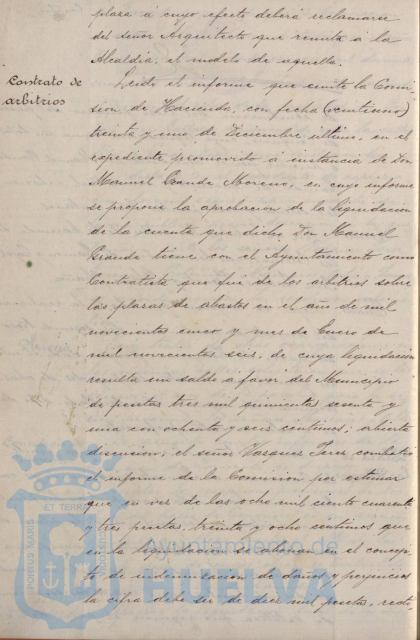 plaza á cuyo efecto deberá reclamarse
del señor Arquitecto que remita á la
Alcaldía, el modelo de aquella.
Contrato de
arbitrios
Leido el informe que emite la Comi-
sion de Hacienda, con fecha (veintiuno)
treinta y uno de Diciembre último, en el
expediente promovido á instancia de Don
Manuel Grande Moreno, en cuyo informe
se propone la aprobación de la liquidación
de la cuenta que dicho Don Manuel
Grande tiene con el Ayuntamiento como
Contratista que fué de los arbitrios sobre
las plazas de abastos en el año de mil
novecientos cinco y mes de Enero de
mil novecientos seis, de cuya liquidacion
resulta un saldo á favor del Municipio
de pesetas tres mil quinientas sesenta y
una con ochenta y seis céntimos; abierta
discusion, el señor Vazquez Perez combatió
el informe de la Comision por estimar
que en vez de las ocho mil ciento cuarenta
y tres pesetas, treinta y ocho céntimos que
en la liquidacion se abonan en el concep-
to de indemnizacion de daños y perjuicios
la cifra debe ser de diez mil pesetas, redo-
PORTUS MARIS ET TERRAE
Ayuntamiento de
HUELVA